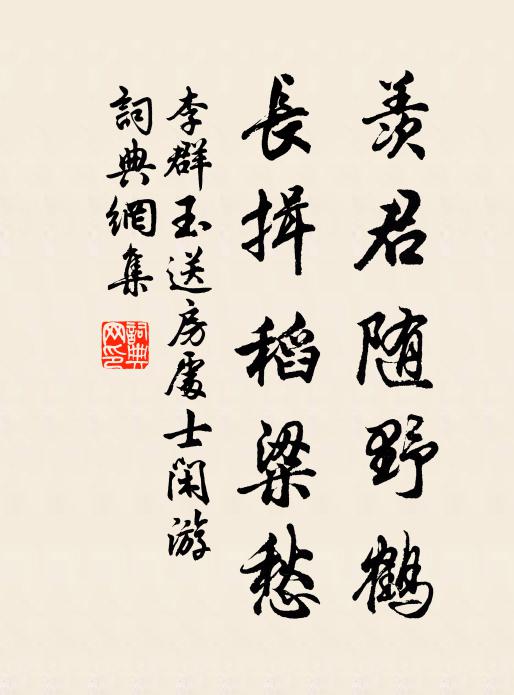 羨君随野鶴
長揖稻粱愁
李群玉送房處士閑游
詞典網集
詞典網印